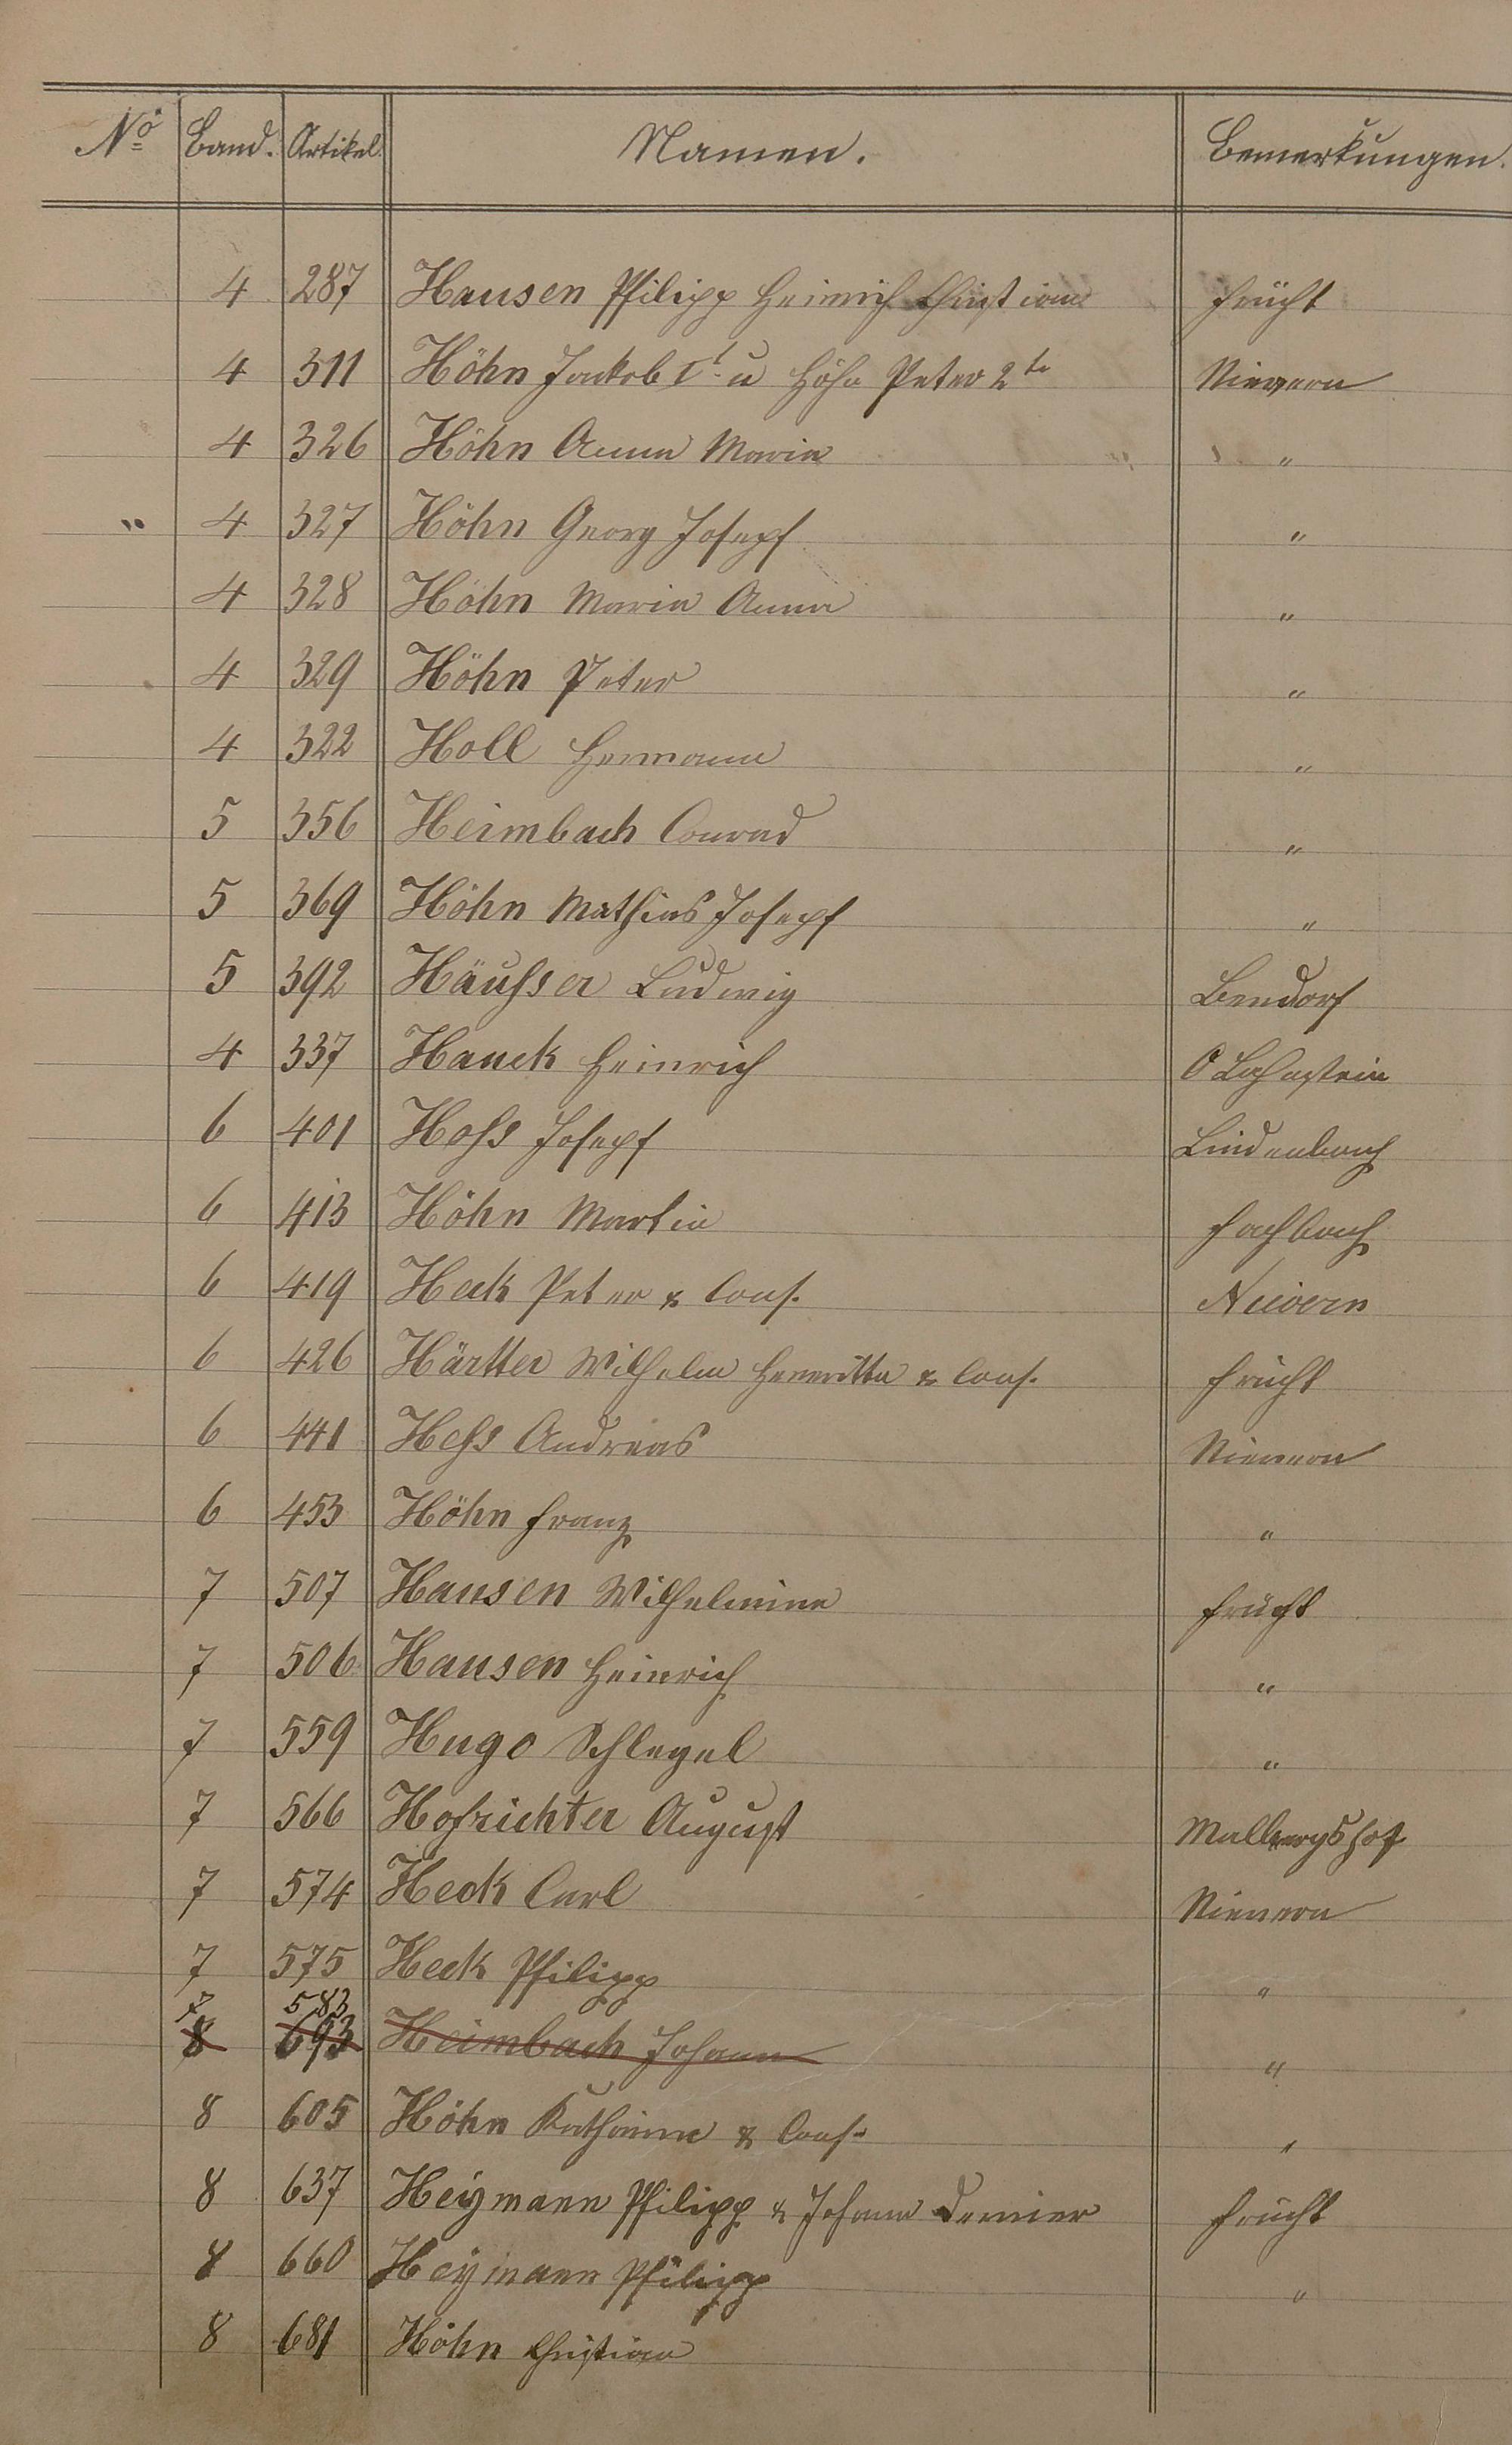 No Band. Artikel. Namen. Bemerkungen.
4 287 Hausen Philipp Heinrich Christian Frücht
4 311 Höhn Jakob 1t u Höhn Peter 2te Nievern
4 326 Höhn Anna Maria "
" 4 327 Höhn Georg Joseph "
4 328 Höhn Maria Anna "
4 329 Höhn Peter "
4 322 Holl Hermann "
5 356 Heimbach Conrad "
5 369 Höhn Mathias Joseph "
5 392 Häusser Ludwig Bendorf
4 337 Hauck Heinrich O Lahnstein
6 401 Hoss Joseph Lindenbach
6 413 Höhn Martin Fachbach
6 419 Heck Peter & Cons. Nievern
6 426 Härtter Wilhelm Henritta & Cons. Frücht
6 441 Hess Andreas Nievern
6 453 Höhn Franz "
7 507 Hausen Wilhelmine Frücht
7 506 Hausen Heinrich "
7 559 Hugo Schlegel "
7 566 Hofrichter August Mallbergshof
7 574 Heck Carl Nievern
7 575 Heck Philipp "
7 583
8 693 Heimbach Johann "
8 605 Höhn Katharina & Cons. "
8 637 Heymann Philipp & Johann Demier Frücht
8 660 Heymann Philipp "
8 681 Höhn Christian